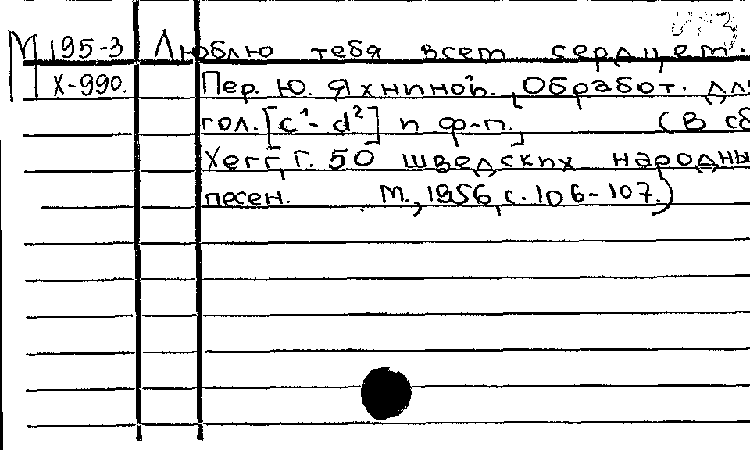 М 195-3 Люблю тебя всем сердцем.
Х-990. Пер. Ю. Яхниной. [Обработ. для
гол. [с¹- d²] и ф-п.] (В сб
Хегг, Г. 50 шведских народны
песен. М., 1956, с. 106-107.)